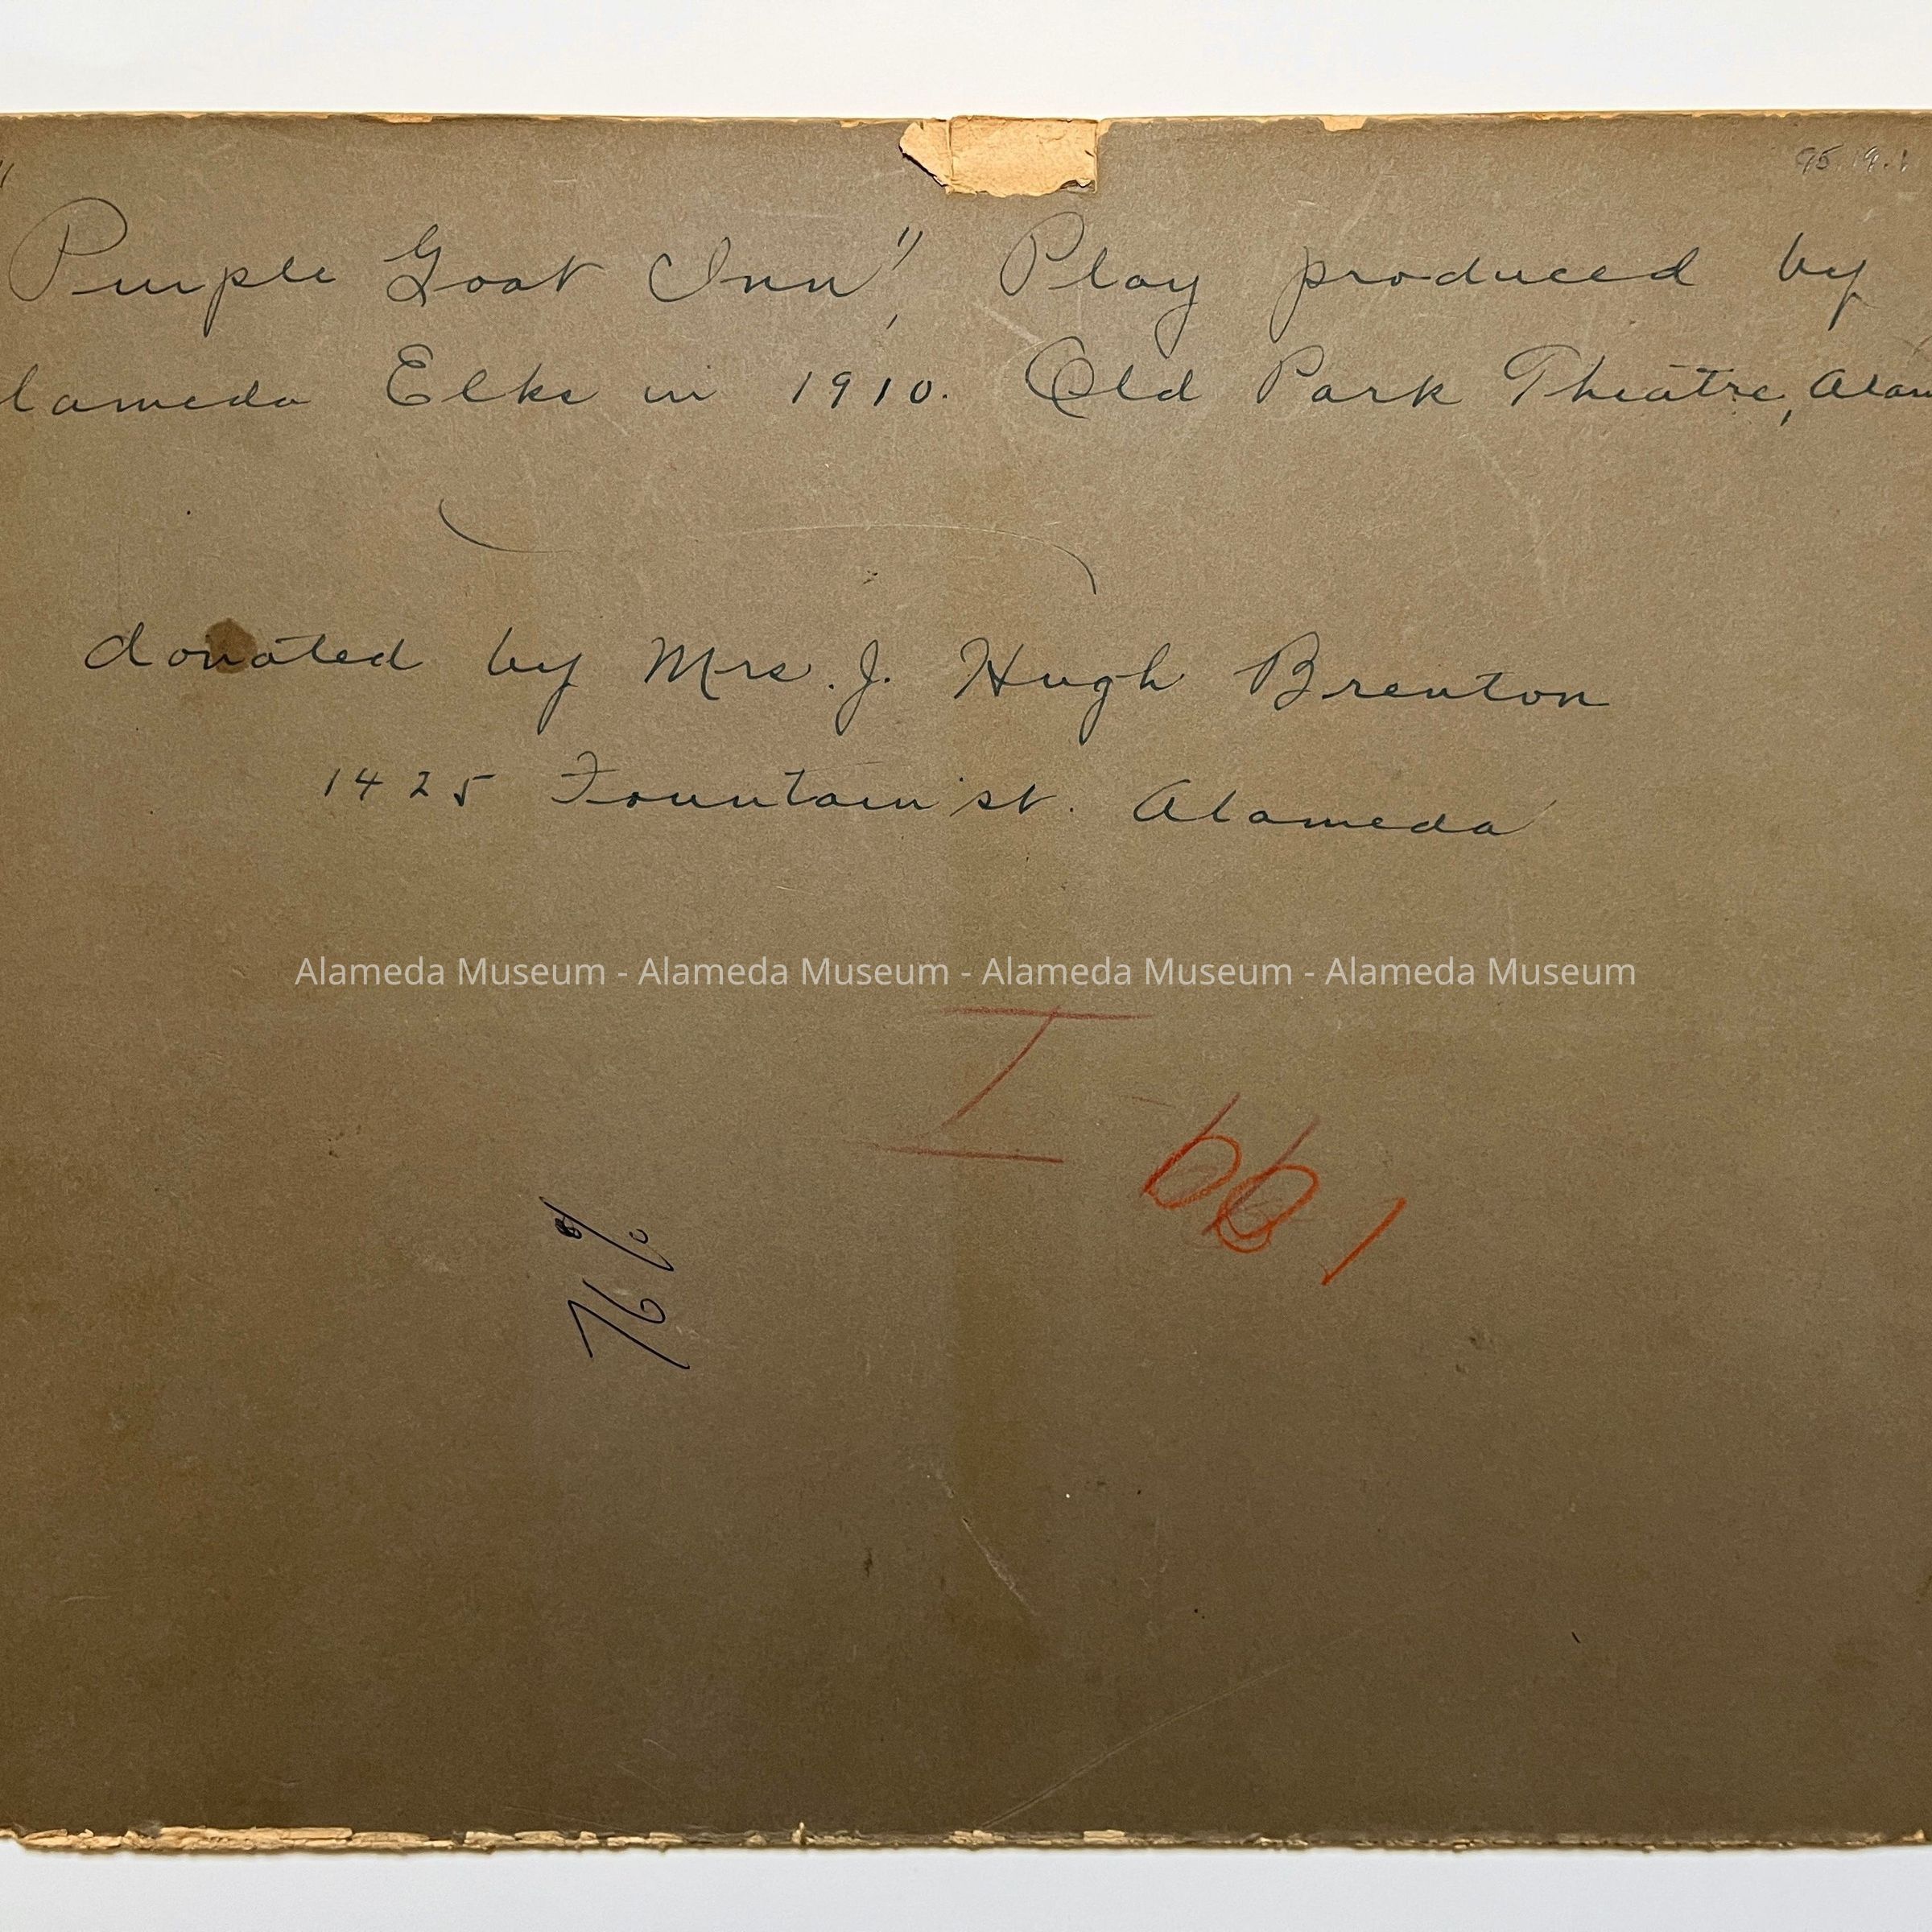 95.19.1
" Purple Goat Inn", Play produced by
lameda Elks in 1910. Old Park Theatre, Alam
donated by Mrs. J. Hugh Brenton
1425 Fountain st. Alameda
Alameda Museum - Alameda Museum - Alameda Museum - Alameda Museum
I - 661
76%